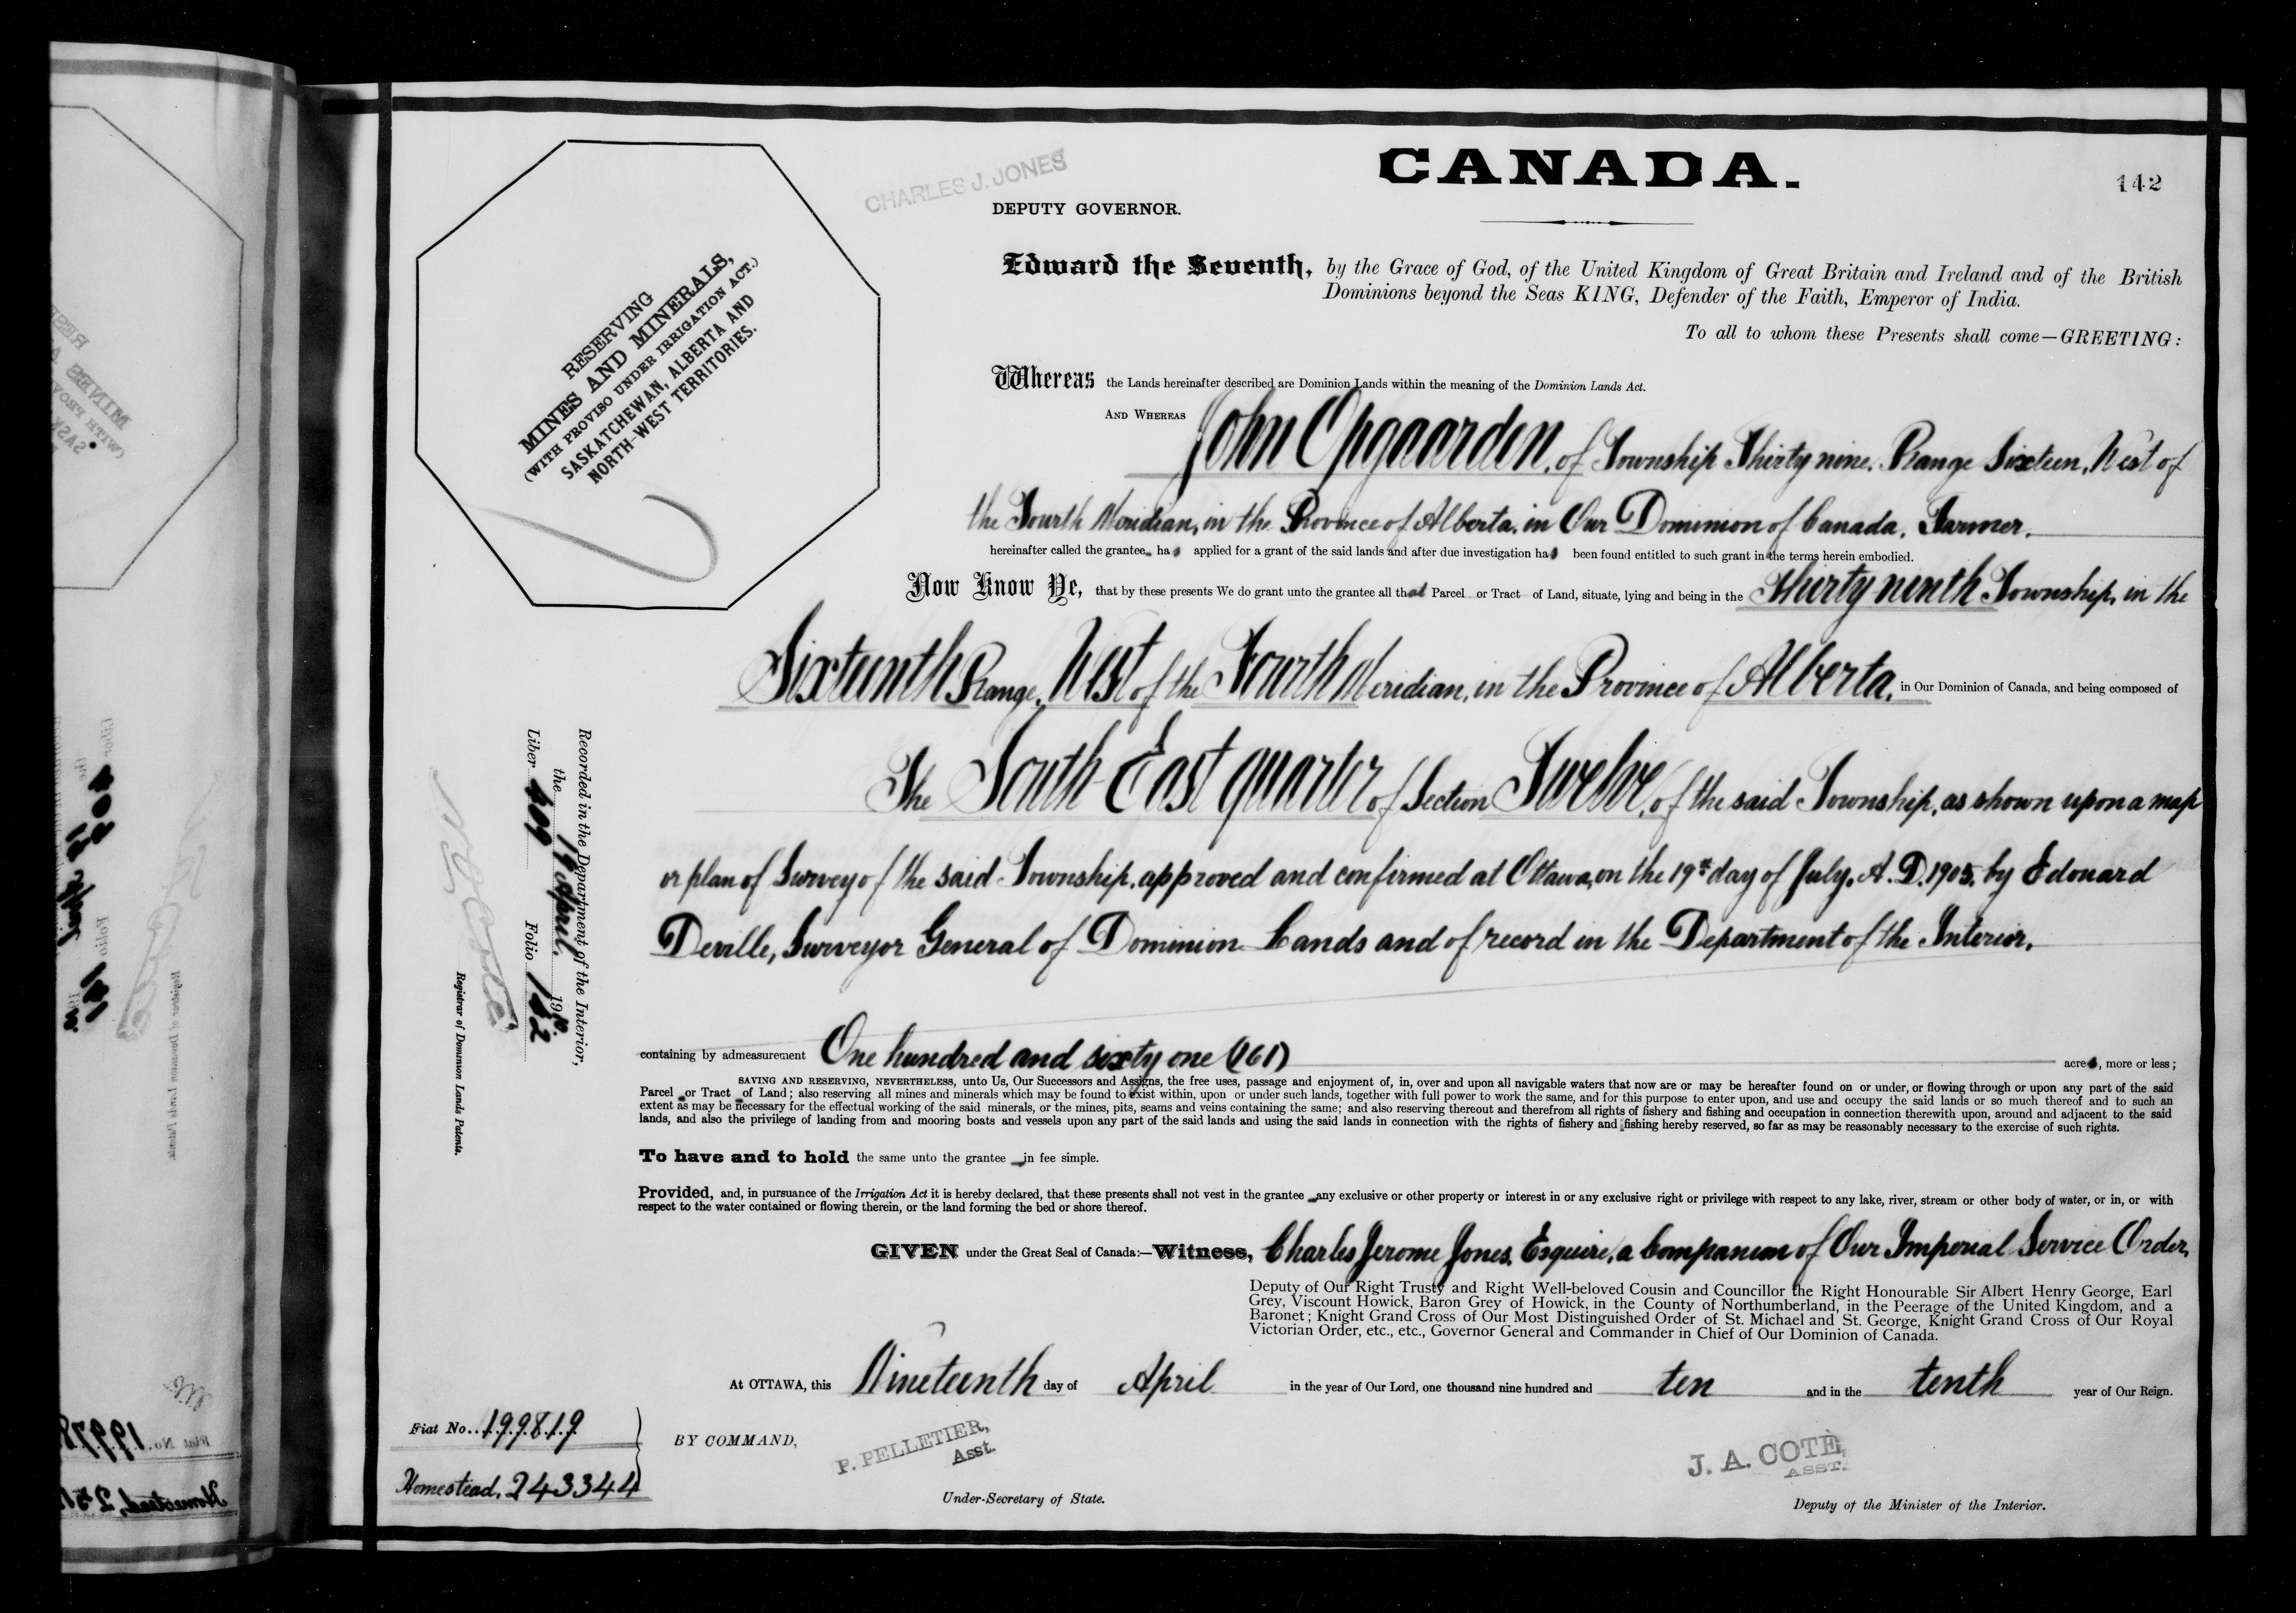 CANADA.
142
CHARLES J. JONES
DEPUTY GOVERNOR.
RESERVING
MINES AND MINERALS,
(WITH PROVISO UNDER IRRIGATION ACT.)
SASKATCHEWAN, ALBERTA AND
NORTH-WEST TERRITORIES.
Edward the Seventh, by the Grace of God, of the United Kingdom of Great Britain and Ireland and of the British
Dominions beyond the Seas KING, Defender of the Faith, Emperor of India.
To all to whom these Presents shall come—GREETING:
Whereas the Lands hereinafter described are Dominion Lands within the meaning of the Dominion Lands Act.
AND WHEREAS John Opgaarden, of Township Thirty nine, Range Sixteen, West of
the Fourth Meridian, in the Province of Alberta, in Our Dominion of Canada, Farmer.
hereinafter called the grantee has applied for a grant of the said lands and after due investigation has been found entitled to such grant in the terms herein embodied.
Now Know Ye, that by these presents We do grant unto the grantee all that Parcel or Tract of Land, situate, lying and being in the Thirty ninth Township, in the
Sixteenth Range, West of the Fourth Meridian, in the Province of Alberta, in Our Dominion of Canada, and being composed of
The South East quarter of Section Twelve, of the said Township, as shown upon a map
or plan of Survey of the said Township, approved and confirmed at Ottawa, on the 19th day of July, A.D. 1905, by Edouard
Deville, Surveyor General of Dominion Lands and of record in the Department of the Interior.
containing by admeasurement One hundred and sixty one (161) acres, more or less;
SAVING AND RESERVING, NEVERTHELESS, unto Us, Our Successors and Assigns, the free uses, passage and enjoyment of, in, over and upon all navigable waters that now are or may be hereafter found on or under, or flowing through or upon any part of the said
Parcel or Tract of Land; also reserving all mines and minerals which may be found to exist within, upon or under such lands, together with full power to work the same, and for this purpose to enter upon, and use and occupy the said lands or so much thereof and to such an
extent as may be necessary for the effectual working of the said minerals, or the mines, pits, seams and veins containing the same; and also reserving thereout and therefrom all rights of fishery and fishing and occupation in connection therewith upon, around and adjacent to the said
lands, and also the privilege of landing from and mooring boats and vessels upon any part of the said lands and using the said lands in connection with the rights of fishery and fishing hereby reserved, so far as may be reasonably necessary to the exercise of such rights.
To have and to hold the same unto the grantee in fee simple.
Provided, and, in pursuance of the Irrigation Act it is hereby declared, that these presents shall not vest in the grantee any exclusive or other property or interest in or any exclusive right or privilege with respect to any lake, river, stream or other body of water, or in, or with
respect to the water contained or flowing therein, or the land forming the bed or shore thereof.
GIVEN under the Great Seal of Canada:—Witness, Charles Jerome Jones, Esquire, a Companion of Our Imperial Service Order,
Deputy of Our Right Trusty and Right Well-beloved Cousin and Councillor the Right Honourable Sir Albert Henry George, Earl
Grey, Viscount Howick, Baron Grey of Howick, in the County of Northumberland, in the Peerage of the United Kingdom, and a
Baronet; Knight Grand Cross of Our Most Distinguished Order of St. Michael and St. George, Knight Grand Cross of Our Royal
Victorian Order, etc., etc., Governor General and Commander in Chief of Our Dominion of Canada.
At OTTAWA, this Nineteenth day of April in the year of Our Lord, one thousand nine hundred and ten and in the tenth year of Our Reign.
BY COMMAND,
P. PELLETIER,
Asst.
Under-Secretary of State.
J. A. COTÉ,
ASST.
Deputy of the Minister of the Interior.
Fiat No. 199819
Homestead, 243344
Recorded in the Department of the Interior,
the 19 April, 1910.
Liber 409 Folio 142
N O Coté
Registrar of Dominion Lands Patents.